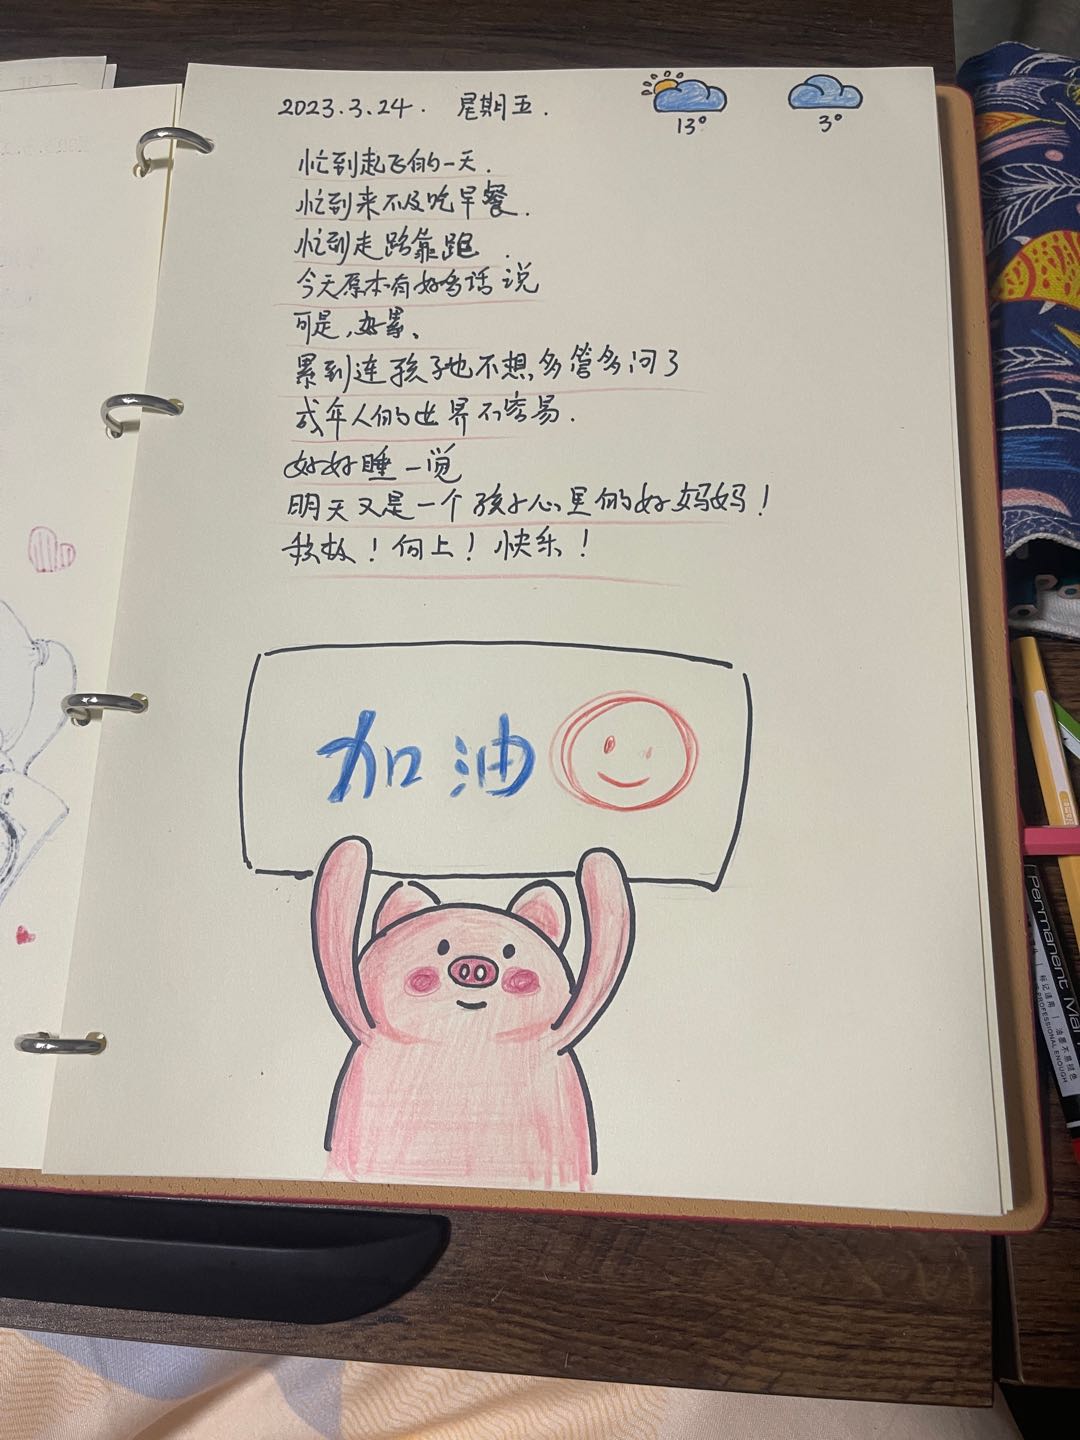 2023.3.24. 星期五.
13° 3°
忙到起飞的一天.
忙到来不及吃早餐.
忙到走路靠跑.
今天原本有好多话说
可是,好累、
累到连孩子也不想多管多问了
成年人的世界不容易.
好好睡一觉
明天又是一个孩子心里的好妈妈!
积极!向上!快乐!
加油
Permanent Mar
标记适用 | 油墨不易褪色
PROFESSIONAL ENOUGH